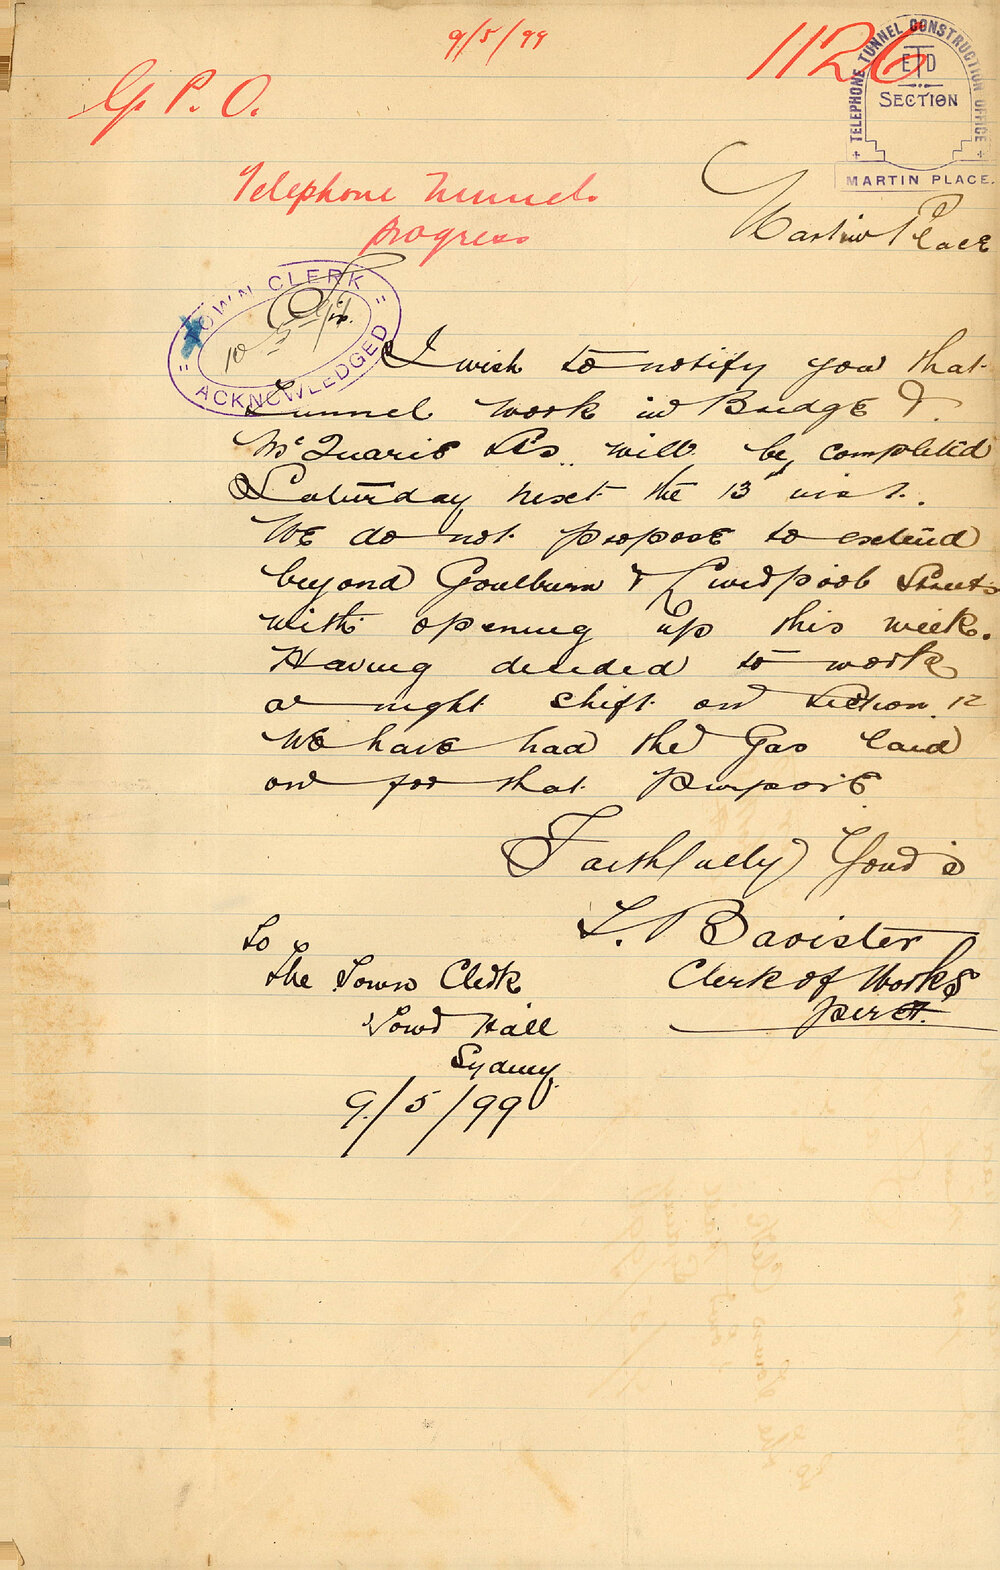 9/5/99
1126
G. P. O.
TELEPHONE TUNNEL CONSTRUCTION OFFICE
ETD
SECTION
MARTIN PLACE.
Telephone Tunnel
progress
Martin Place
TOWN CLERK
10-5-
ACKNOWLEDGED
I wish to notify you that
Tunnel work in Bridge &
McQuarie Sts. will be completed
Saturday next the 13th inst.
We do not propose to extend
beyond Goulburn & Liverpool Streets
with opening up this week.
Having decided to work
a night shift on Section 12
We have had the Gas laid
on for that purpose
Faithfully Yours
T. Bavister
Clerk of Works
per
To
The Town Clerk
Town Hall
Sydney
9/5/99